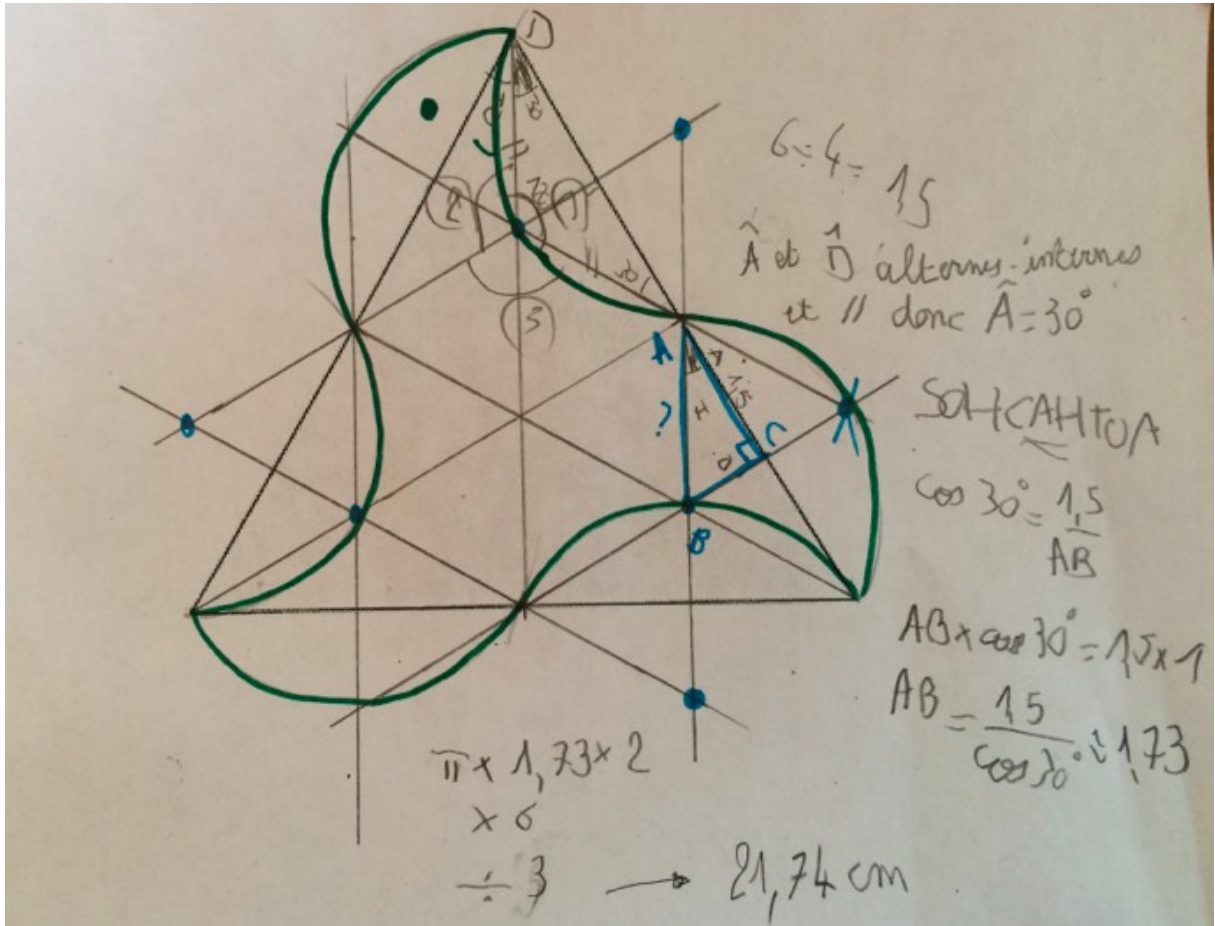 D
30
(2)
(1)
30
(3)
6÷4=1,5
Â et D̂ alternes-internes
et // donc Â=30°
A
?
H
A
1,5
C
B
SOHCAHTOA
cos 30° = 1,5/AB
AB × cos 30° = 1,5 × 1
AB = 1,5/cos 30° ≈ 1,73
π × 1,73 × 2
× 6
÷ 3 → 21,74 cm